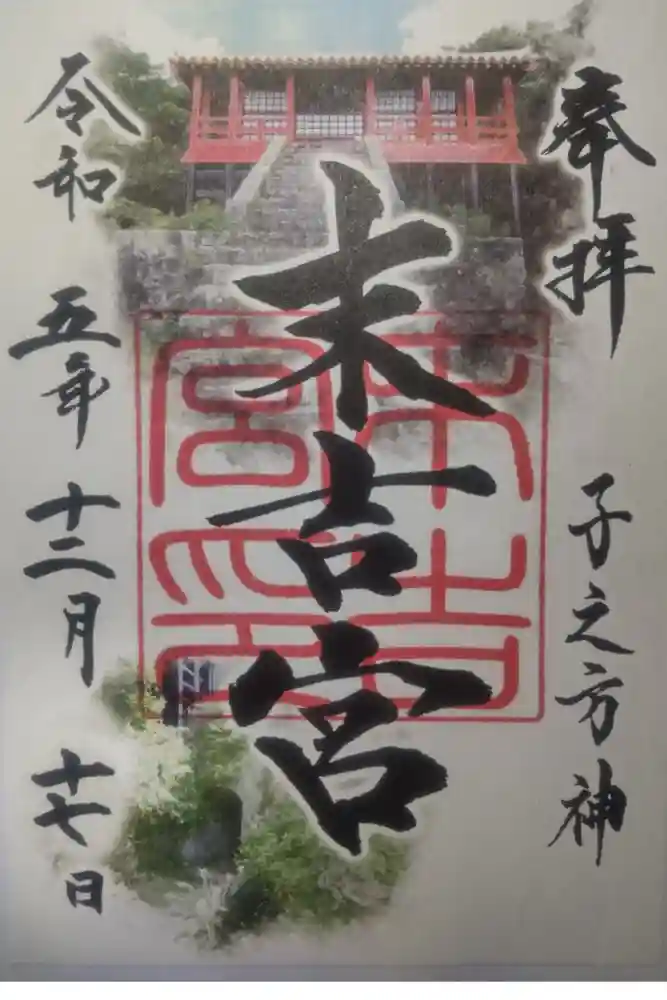 奉拝
子之方神
末吉宮
末吉宮印
令和五年十二月十七日